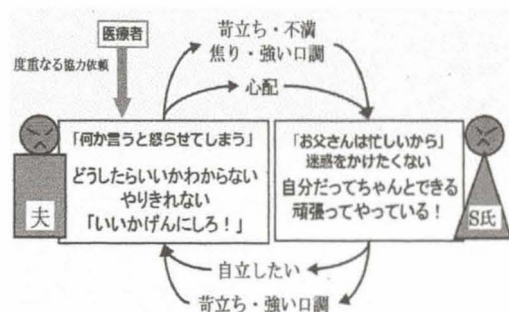 医療者
度重なる協力依頼
苛立ち・不満
焦り・強い口調
心配
「何か言うと怒らせてしまう」
どうしたらいいかわからない
やりきれない
「いいかげんにしろ！」
夫
「お父さんは忙しいから」
迷惑をかけたくない
自分だってちゃんとできる
頑張ってやっている！
S氏
自立したい
苛立ち・強い口調